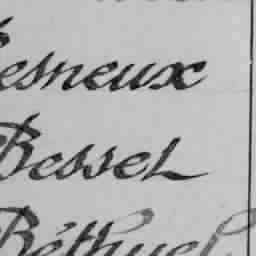 esneux
Bessel
Béthuel